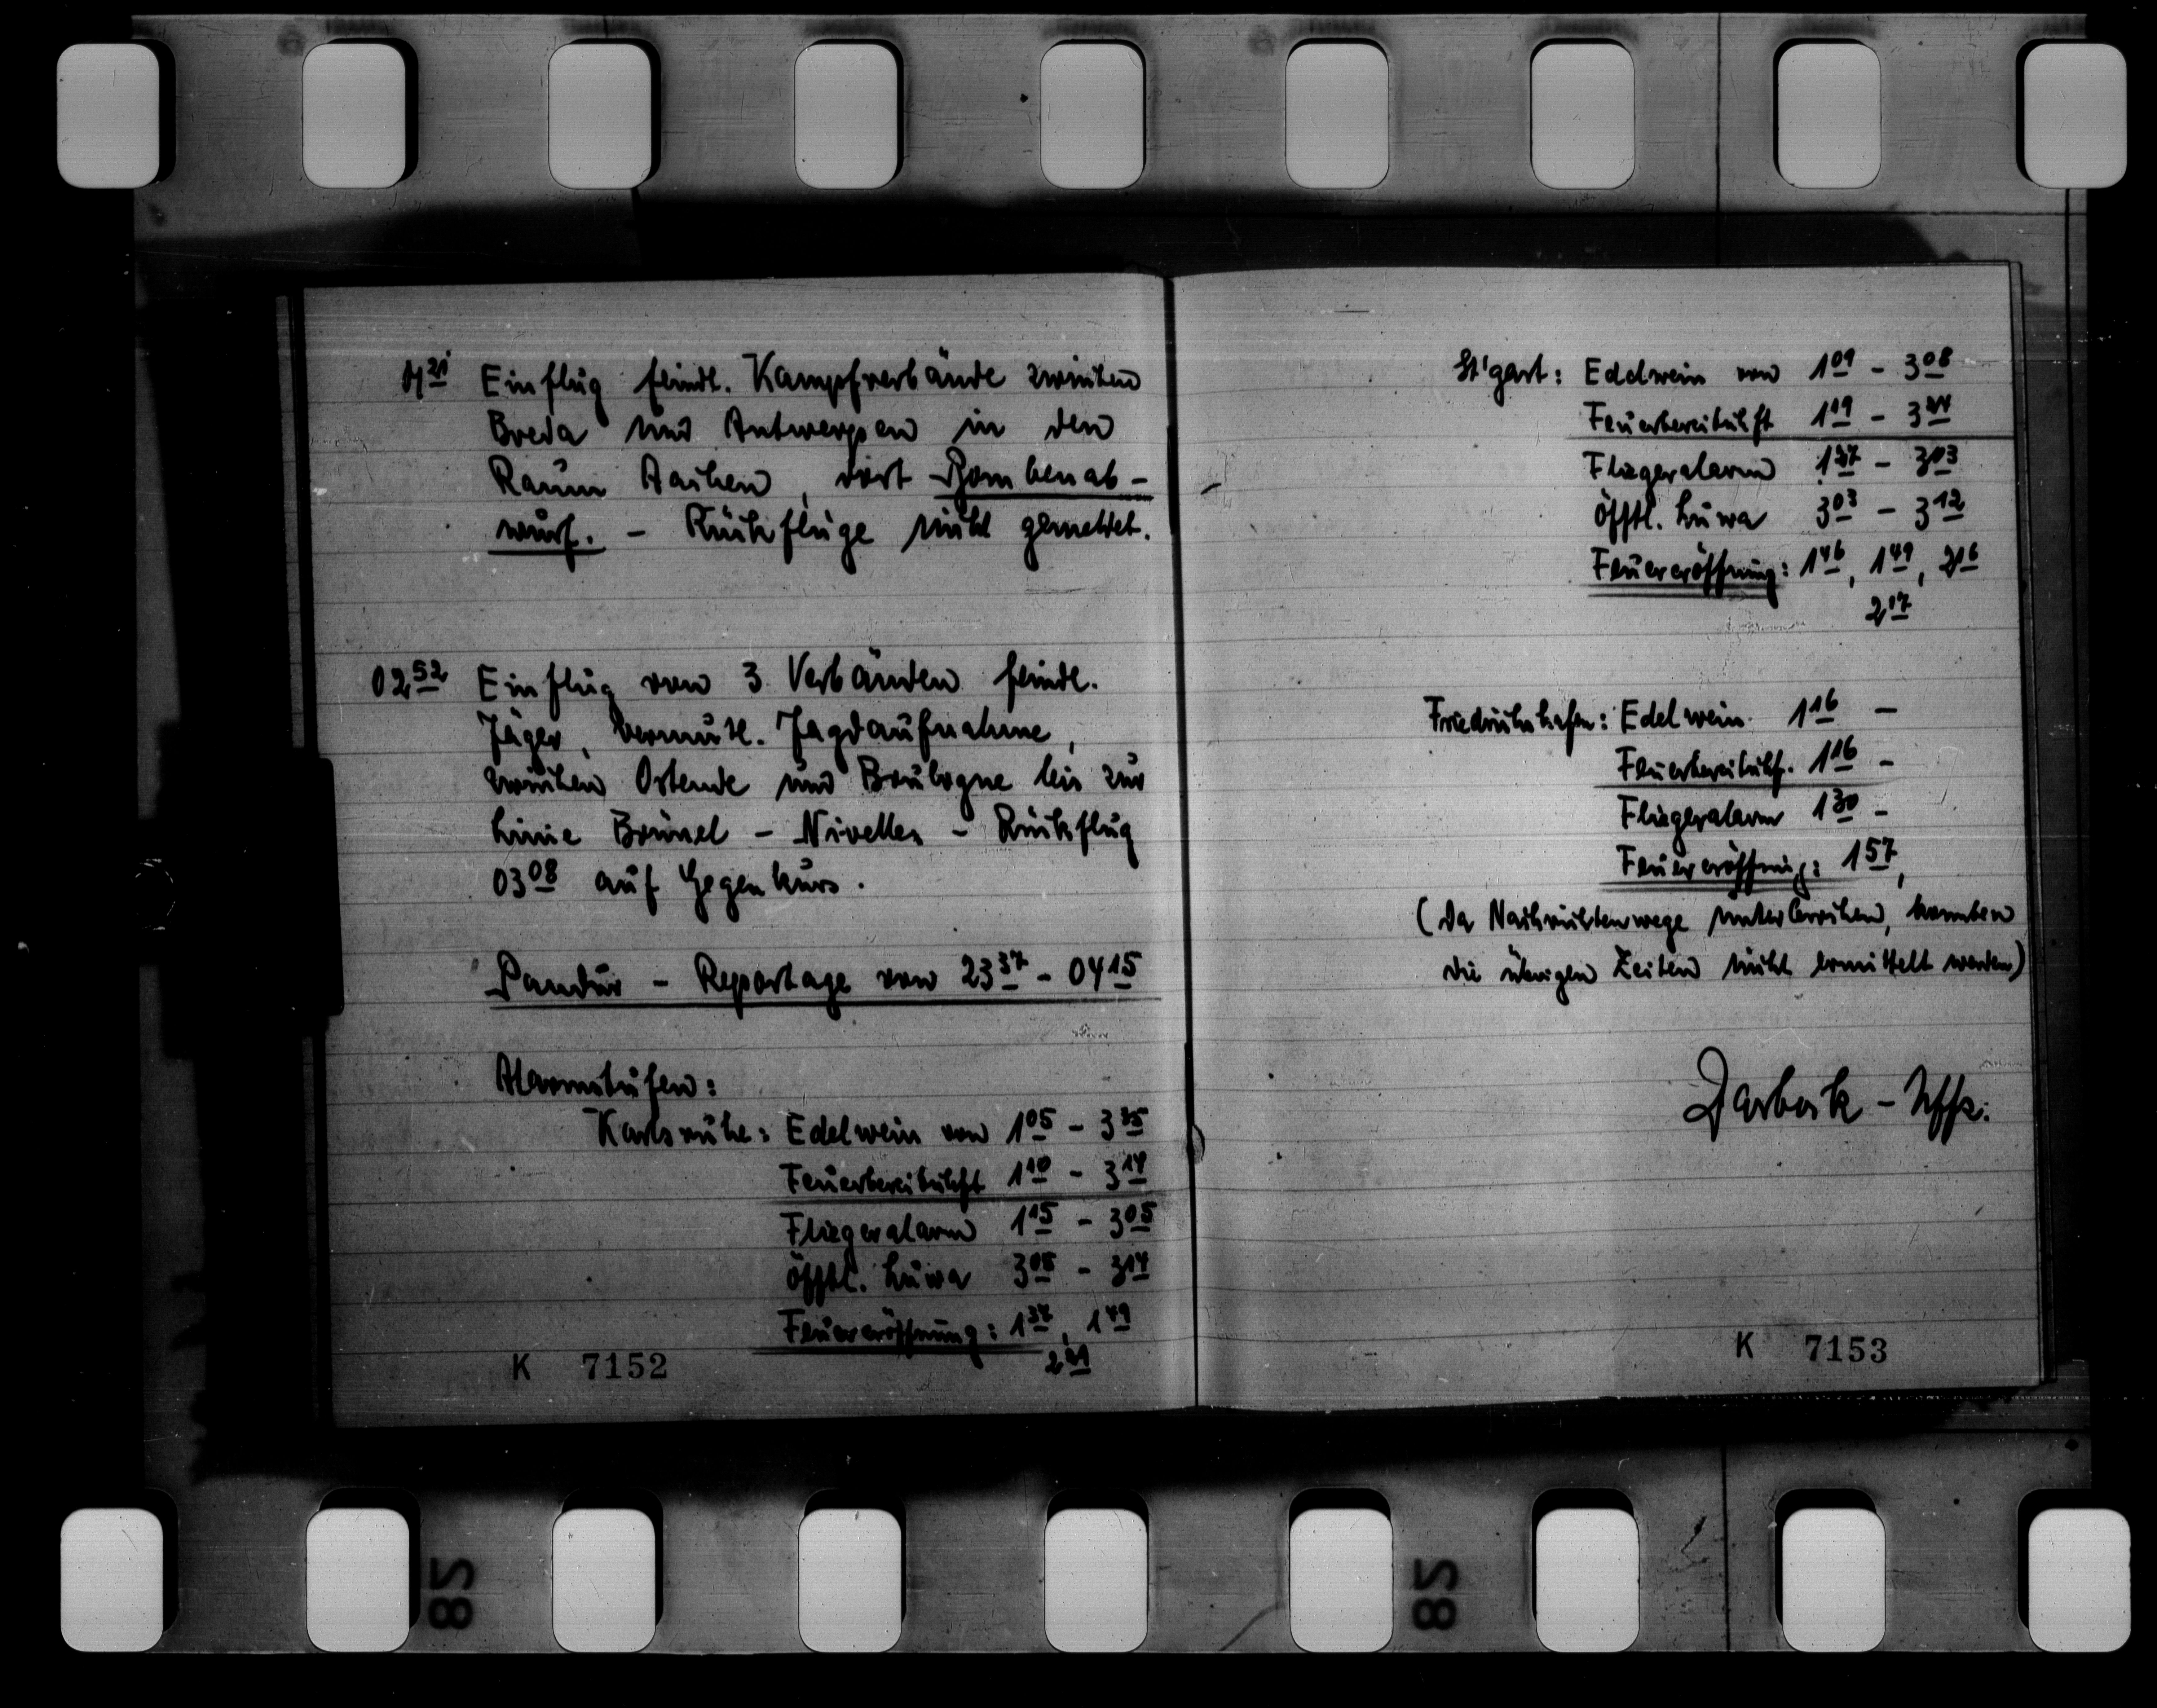 Einflug feindl. Kampfverbände zwischen
Breda und Antwerpen in den
Raum Aachen, dort Bombenab-
wurf. - Rückflüge nicht gemeldet.
02 52 Einflug von 3 Verbänden feindl.
Jäger, vermutl. Jagdaufnahme,
zwischen Ostende und Boulogne bis zur
Linie Brüssel - Nivelles - Rückflug
03 08 auf Gegenkurs.
Pandur - Reportage von 23 37 - 04 15
Alarmstufen:
Karlsruhe: Edelwein von 1 05 - 3 35
Feuerbereitschft 1 10 - 3 14
Fliegeralarm 1 15 - 3 05
Öfftl. Luwa 3 05 - 3 14
Feuereröffnung: 1 37, 1 49
K 7152
St'gart: Edelwein von 1 09 - 3 08
Feuerbereitschft 1 19 - 3
Fliegeralarm 1 37 - 3 03
Öfftl. Luwa 3 03 - 3 12
Feuereröffnung: 1 46, 1 49, 2 16
2 17
Friedrichshafen: Edelwein 1 16 -
Feuerbereitschf. 1 16 -
Fliegeralarm 1 30 -
Feuereröffnung: 1 57,
(Da Nachrichtenwege unterbrochen, konnten
die übrigen Zeiten nicht ermittelt werden)
Uffz.
K 7153
28
28